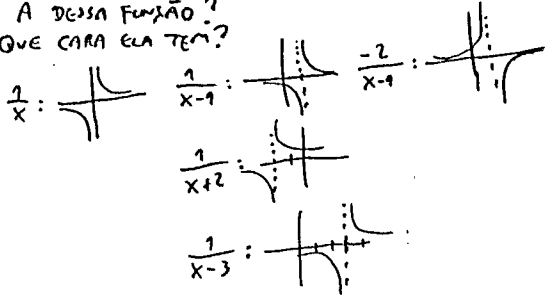 A DESSA FUNÇÃO?
QUE CARA ELA TEM?
1/x :
1/x-1 :
-2/x-1 :
1/x+2 :
1/x-3 :